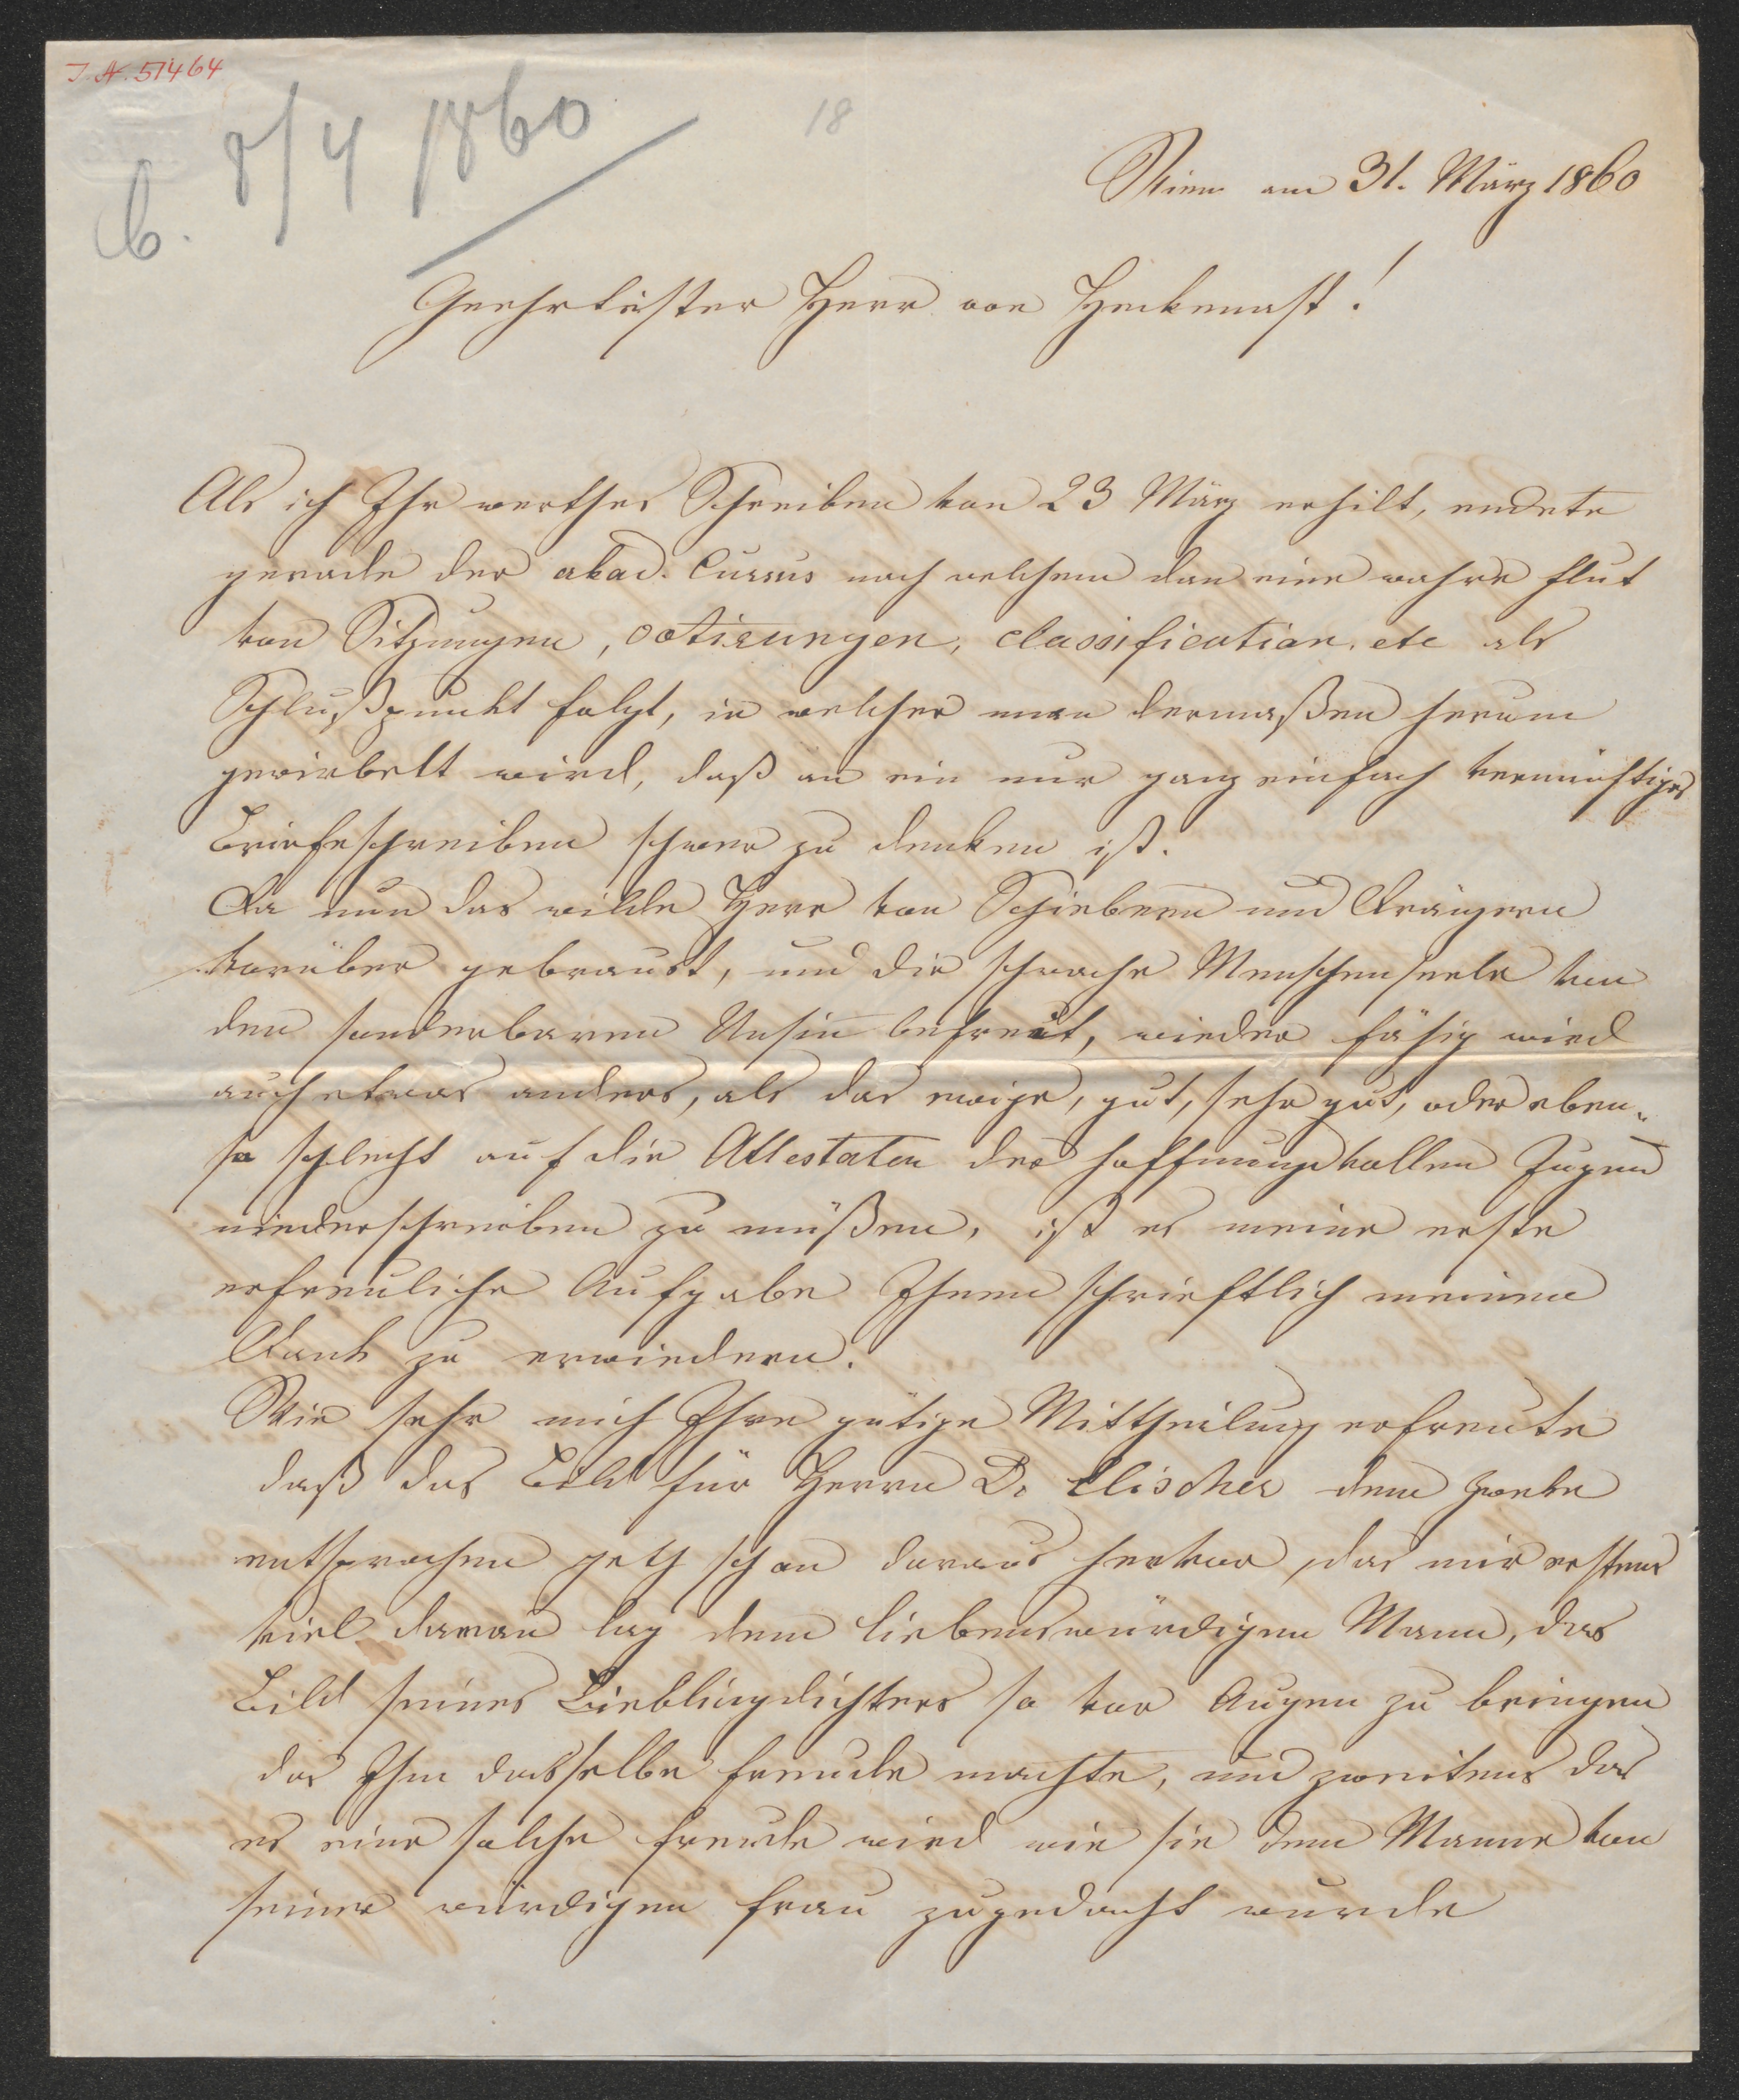 J.N. 51464
b. 8/4 1860
18
Wien am 31. März 1860
Geehrtester Herr von Heckenast!
Als ich Ihr werthes Schreiben von 23 März erhilt, endete
gerade der akad. Cursus nach welchem dan eine wahre flut
von Sitzungen, votirungen, classification. etc als
Schlußpunkt folgt, in welcher man dermaßen herum
gewirbelt wird, daß an ein nur ganz einfach vernünftiges
Briefeschreiben schwer zu denken ist.
Da nun das wilde Heer von Schiebern und Drängern
vorüber gebraust, und die schwache Menschenseele von
den sonderbaren Unsin̄ befreit, wieder fähig wird
auch etwas anders, als das ewige, gut, sehr gut, oder eben„
so schlecht auf die Attestaten der hoffnungsvollen Jugend
niederschreiben zu müßen, ist es meine erste
erfreuliche Aufgabe Ihnen schrieftlich meinen
Dank zu erwiedern.
Wie sehr mich Ihre gütige Mittheilung erfreute
daß das Bild für Herrn D. Elischer dem Zweke
entsprochen geht schon daraus hervor, das mir erstens
viel daran lag dem liebenswürdigen Mann, das
Bild seines Lieblingdichters so vor Augen zu bringen
das Ihm dasselbe freude machte, und zweitens das
es eine solche freude wird wie sie dem Manne von
seiner würdigen frau zugedacht wurde